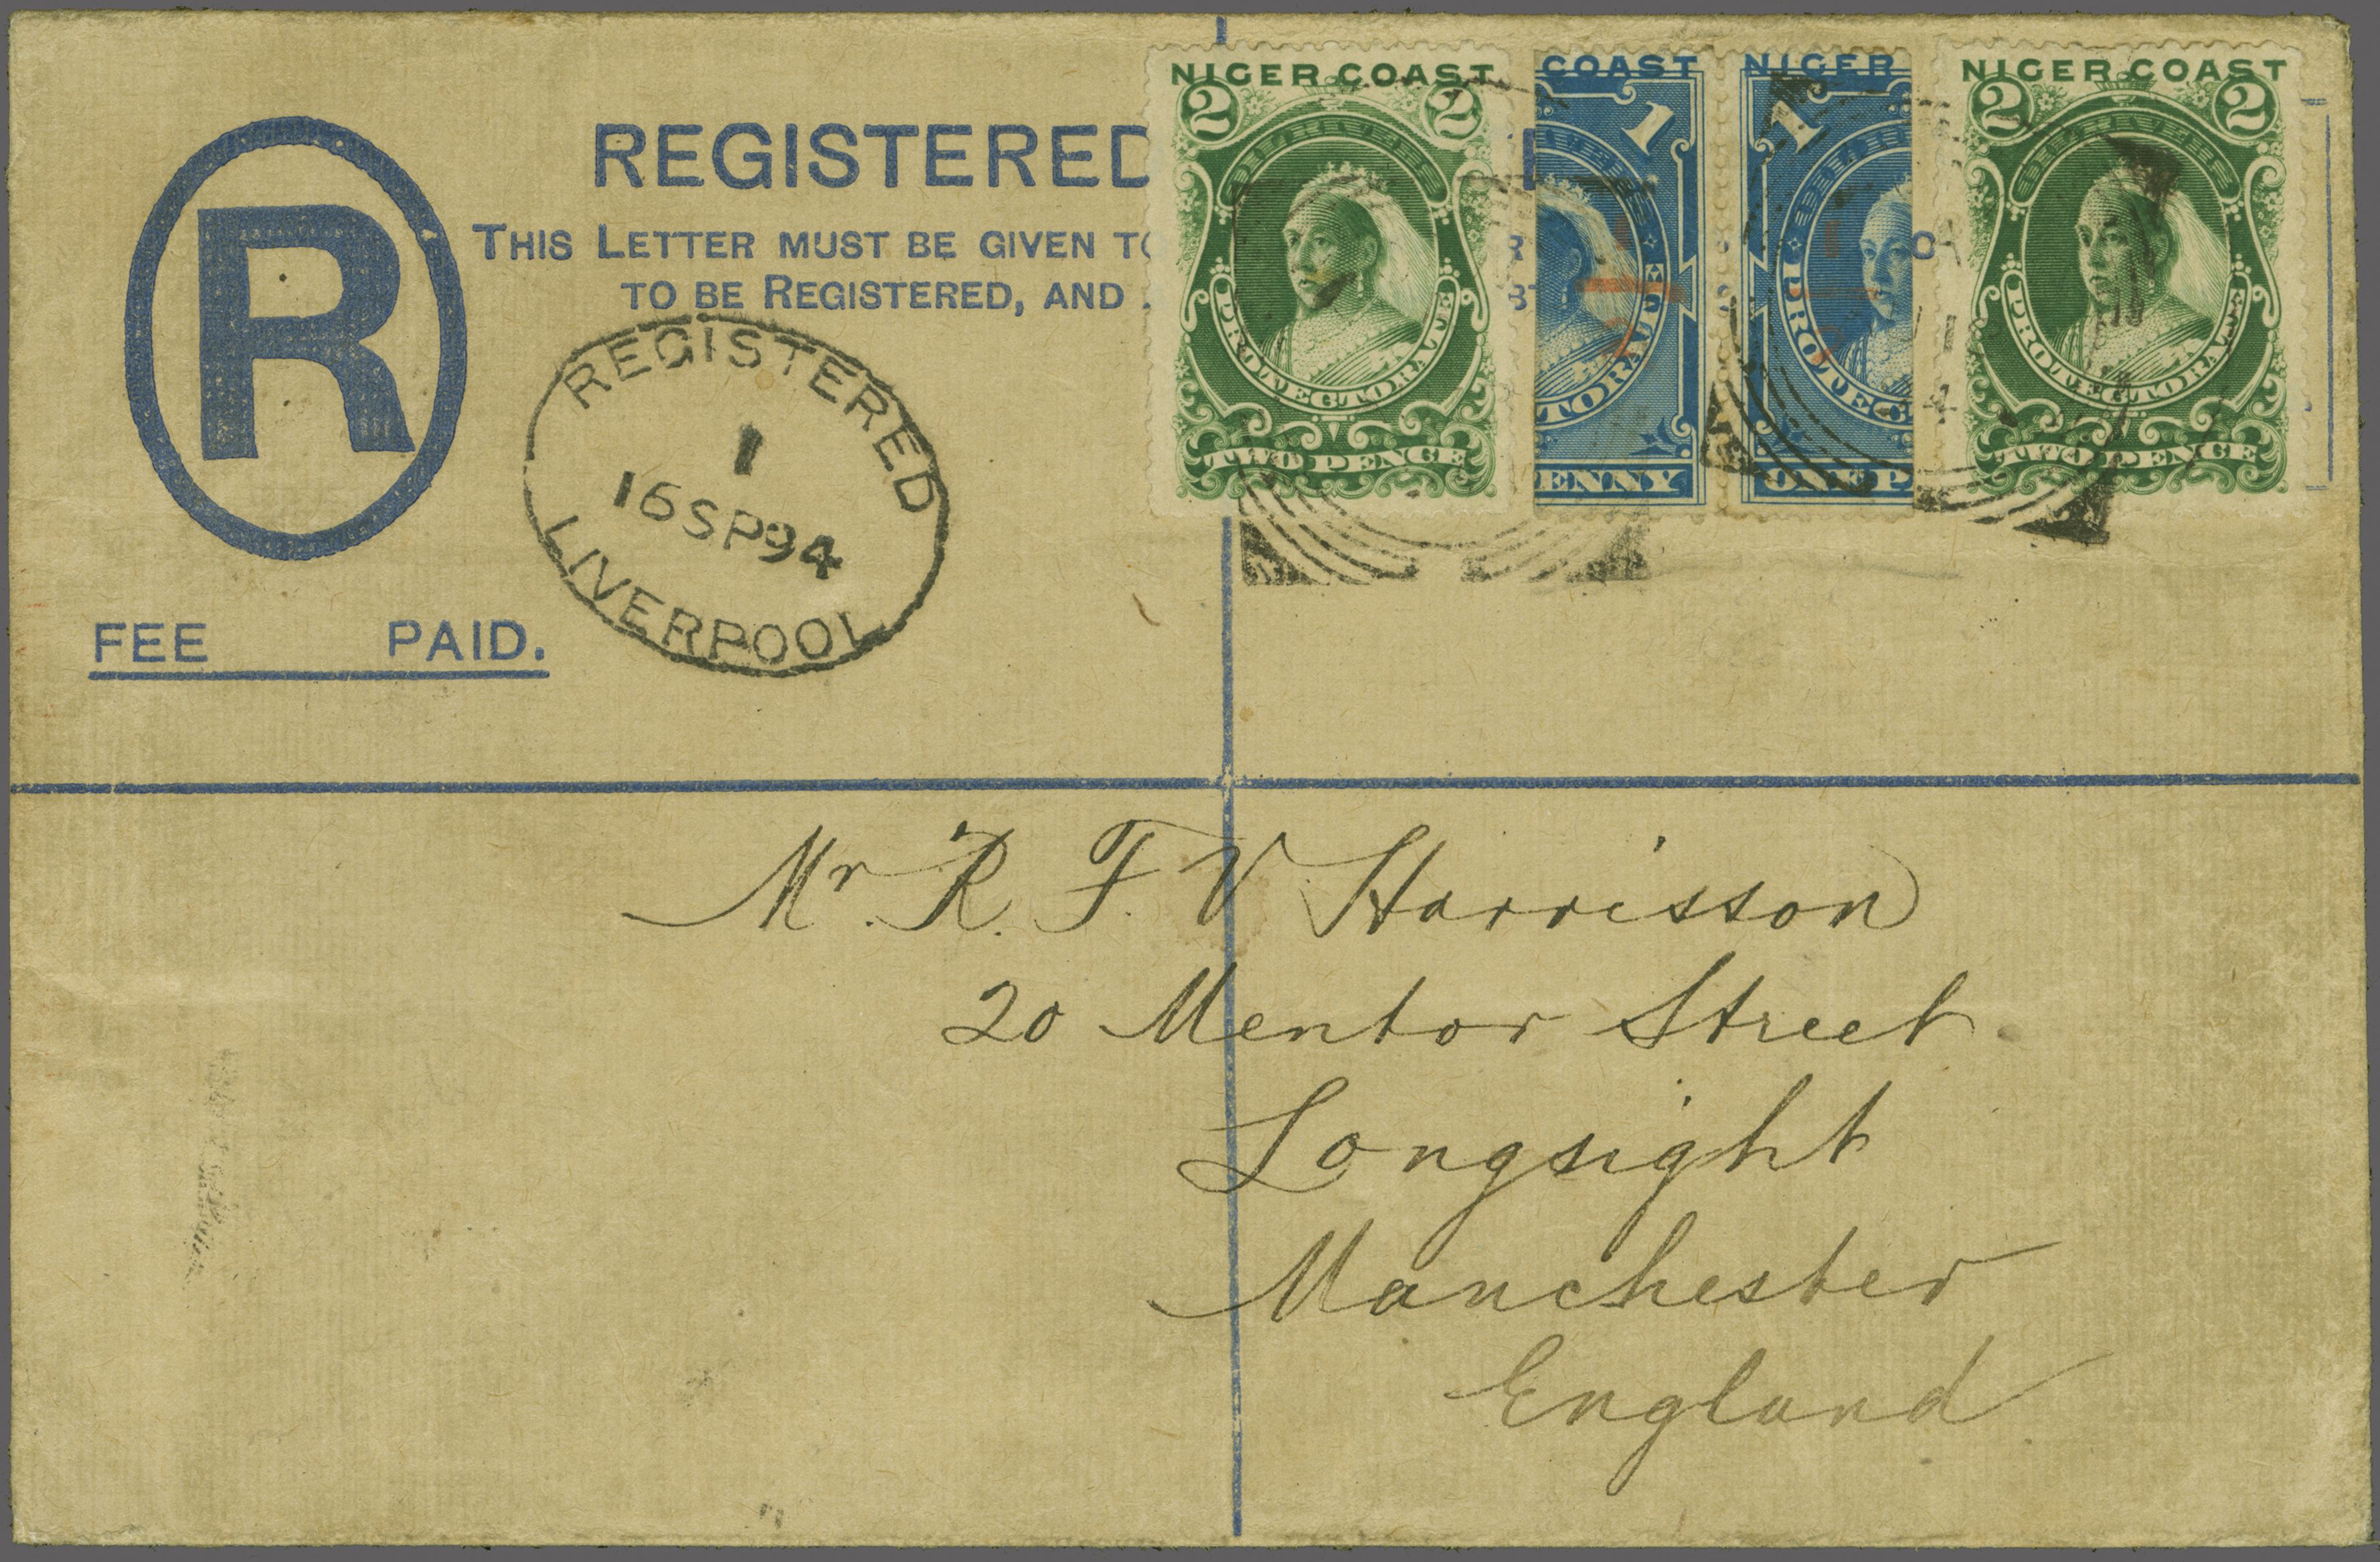 REGISTERED
THIS LETTER MUST BE GIVEN
TO BE REGISTERED, AND
R
FEE PAID.
REGISTERED
1
16 SP 94
LIVERPOOL
NIGER COAST
2 2
PROTECTORATE
TWO PENCE
COAST
1
TORATE
ENNY
NIGER
1
PROTEC
ONE P
NIGER COAST
2 2
PROTECTORATE
TWO PENCE
Mr. R. F. V Harrisson
20 Mentor Street
Longsight
Manchester
England